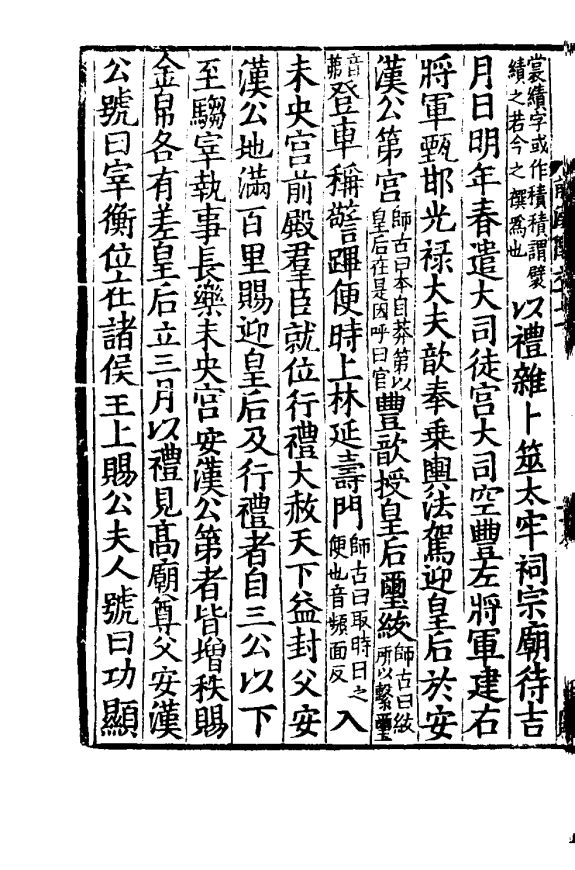 裳績字或作積積謂襞績之若今之襈爲也以禮雜卜筮太牢祠宗廟待吉
月日明年春遣大司徒宫大司空豐左將軍建右
將軍甄邯光祿大夫歆奉乗輿法駕迎皇后於安
漢公第宫師古曰本自莽第以皇后在是因呼曰官豐歆授皇后璽紱師古曰紱所以繫璽
音弗登車稱警蹕便時上林延壽門師古曰取時日之便也音頻面反入
未央宫前殿羣臣就位行禮大赦天下益封父安
漢公地滿百里賜迎皇后及行禮者自三公以下
至騶宰執事長樂未央宫安漢公第者皆增秩賜
金帛各有差皇后立三月以禮見髙廟尊父安漢
公號曰宰衡位在諸侯王上賜公夫人號曰功顯